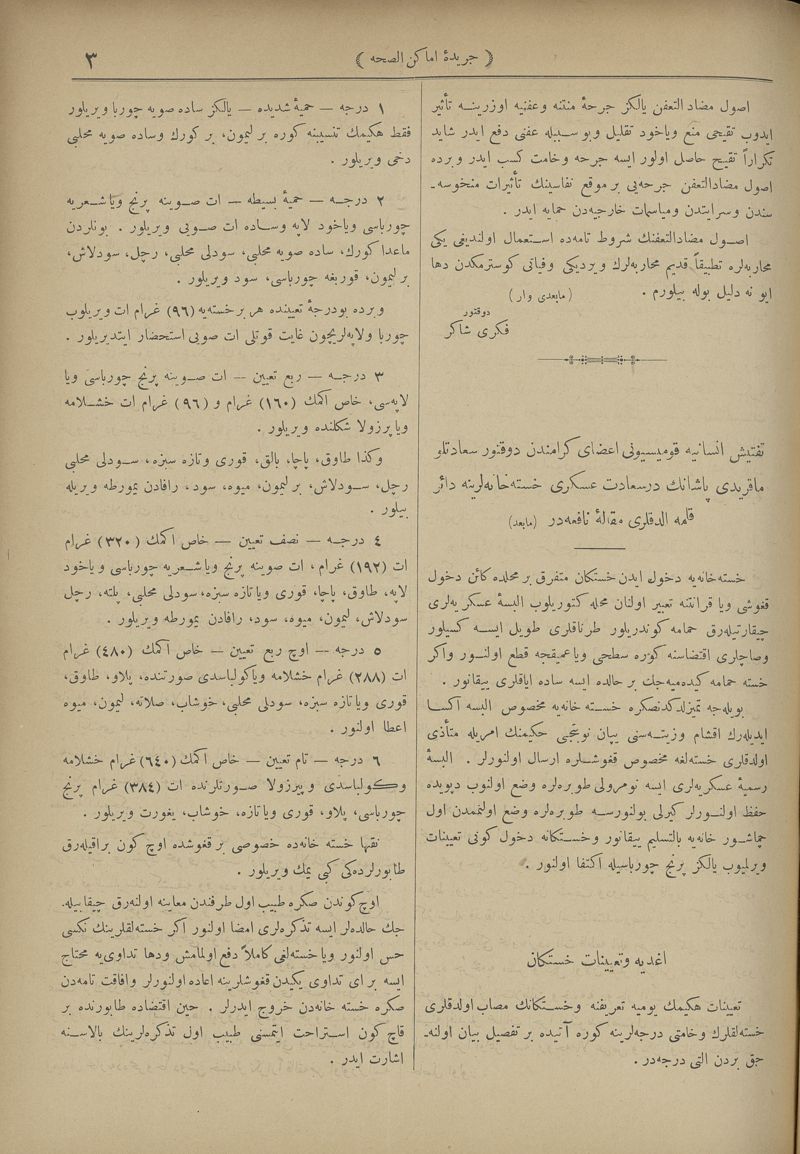 ﴿ جريدۀ اماكن الصحه ﴾
٣
اصول مضاد التعفن يالكز جرحۀ منتنه وعفنيه اوزرينه تأثير
ايدوب تقيحى منع وياخود تقليل وبو سببله عفنى دفع ايدر شايد
تكراراً تقيح حاصل اولور ايسه جرحه وخامت كسب ايدر وبرده
اصول مضادالتعفن جرحه‌يى بر موقع نفاسينك تأثيرات منحوسه‌ـ
سندن وسرايتدن ومياسمات خارجيه‌دن حمايه ايدر .
اصـول مضادالتعفنك شروط تامه‌ده اسـتعمال اولنديغى يكى
محاربه‌لره تطبيقاً قديم محاربه‌لرك ويرديكى وفياتى كوسترمكدن دها
ايو نه دليل بوله بيلورم . ( مابعدى وار )
دوقتور
فكرى شاكر
تفتيش انسانيه قوميسيونى اعضاى كرامندن دوقتور سعادتلو
ماقريدى پاشانك درسعادت عسكرى خسته‌خانه‌لرينه دائر
قلمه الدقلرى مقالۀ نافعه‌در (مابعد)
خسته‌خانه‌يه دخول ايدن خستكان متفرق بر محلده كائن دخول
قغوشى ويا قرانتنه تعبير اولنان محله كتوريلوب البسۀ عسكريه‌لرى
چيقارتيله‌رق حمامه كوندريلور طرناقلرى طويل ايسـه كسيلور
وصاچلرى اقتضاسنه كوره سطحى وياعميقجه قطع اولنـور واكر
خسته حمامه كيده‌ميه‌جك بر حالده ايسه ساده اياقلرى ييقانور .
بويله‌جه تميزلدكدنصكره خسـته خانه‌يه مخصوص البسه اكسا
ايديله‌رك اقشام وزيتـه‌سنى ييان نوبتجى حكيمنك امريله متأذى
اولدقلرى خسته‌لغه مخصوص قغوشـلره ارسال اولنورلر . البسۀ
رسميۀ عسكريه‌لرى ايسه نومرولى طوبره‌لره وضع اولنوب ديپويده
حفظ اولنـورلر كيرلى بولنورسـه طوبره‌لره وضع اولنمدن اول
چماشـور خانه‌يه بالتسليم ييقانور وخسـتكانه دخول كونى تعيينات
ويرلميوب يالكز پرنج چورباسيله اكتفا اولنور .
اغديه وتعيينات خستكان
تعيينات حكيمك يوميه تعريفنه وخسـتكانك مصاب اولدقلرى
خسته‌لقلرك وخامتى درجه‌لرينه كوره آتيده بر تفصيل بيان اولنه‌ـ
جق بردن التى درجه‌در .
١ درجه — حميۀ شديده — يالكز ساده صويه چوربا ويريلور
فقط حكيمك تنسيبنه كوره بر ليمون، بر كورك وساده صويه محلبى
دخى ويريلور .
٢ درجـه — حميۀ بسيطه — ات صـوينه پرنج وياشـعريه
چورباسى وياخود لاپه وسـاده ات صـوبى ويريلور . بونلردن
ماعدا كورك، ساده صويه محلبى، سودلى محلبى، رچل، سودلاش،
بر ليمون، قوريغه چورباسى، سود ويريلور .
وبرده بودرجۀ تعيينده هر برخسته‌يه (٩٦) غرام ات ويريلوب
چوربا ولاپه‌لريچون غايت قوتلى ات صويى استحضار ايتديريلور .
٣ درجـه — ربع تعيين — ات صـوينه پرنج چورباسى ويا
لاپه‌سى، خاص اكمك (١٦٠) غرام و (٩٦) غرام ات خشـلامه
وياپرزولا شكلنده ويريلور .
وكذا طاوق، پاچا، بالق، قورى وتازه سبزه، سـودلى محلبى
رچل، سـودلاش، بر ليمون، ميوه، سود، رافادن يمورطه ويريله
بيلور .
٤ درجـه — نصف تعيين — خاص اكمك (٣٢٠) غرام
ات (١٩٢) غرام ، ات صوينه پرنج وياشـعريه چورباسى وياخود
لاپه، طاوق، پاچا، قورى وياتازه سبزه، سودلى محلبى، پلته، رچل
سودلاش، ليمون، ميوه، سود، رافادن يمورطه ويريلور .
٥ درجه — اوچ ربع تعيين — خاص اكمك (٤٨٠) غرام
ات (٢٨٨) غرام خشلامه وياكولباسدى صورتنده، پلاو، طاوق،
قورى وياتازه سبزه، سودلى محلبى، خوشاب، صلاته، ليمون، ميوه
اعطا اولنور .
٦ درجه — تام تعيين — خاص اكمك (٦٤٠) غرام خشلامه
وكولباسدى و پيرزولا صـورتلرنده ات (٣٨٤) غرام پرنج
چورباسى، پلاو، قورى وياتازه، خوشاب، يغورت ويريلور .
نقها خسته خانه‌ده خصوصى بر قغوشده اوچ كون براقيله‌رق
طابورلرده‌كى كبى يمك ويريلور .
اوچ كوندن صكره طبيب اول طرفندن معاينه اولنه‌رق چيقابيله‌ـ
جك حالده‌لر ايسه تذكره‌لرى امضا اولنور اكر خسته‌لقلرينك نكسى
حس اولنور وياخسته‌لغى كاملاً دفع اولمامش ودها تداوى‌يه محتاج
ايسه براى تداوى يكيدن قغوشلرينه اعاده اولنورلر وافاقت تامه‌دن
صكره خسته خانه‌دن خروج ايدرلر . حين اقتضاده طابورنده بر
قاچ كون اسـتراحت ايتمسنى طبيب اول تذكره‌لرينك بالاسـنه
اشارت ايدر .